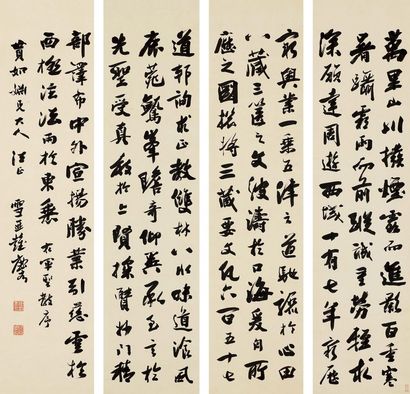 萬里山川撥煙霞而進百重寒
暑躡霜雨而前蹤誠重勞輕求
深願達周遊西域十有七年窮歷
窮奧業一乘五律之道馳驟於心田
八藏三篋之文波濤於口海爰自所
歷之國總將三藏要文凡六百五十七
道邦詢求正教雙林八水味道飡風
鹿菀鷲峯瞻奇仰異承至言於
先聖受真教於上賢探賾妙門精
部譯布中外宣揚勝業引慈雲於
西極注法雨於東垂 右軍聖教序
如姻兄大人法正
雪